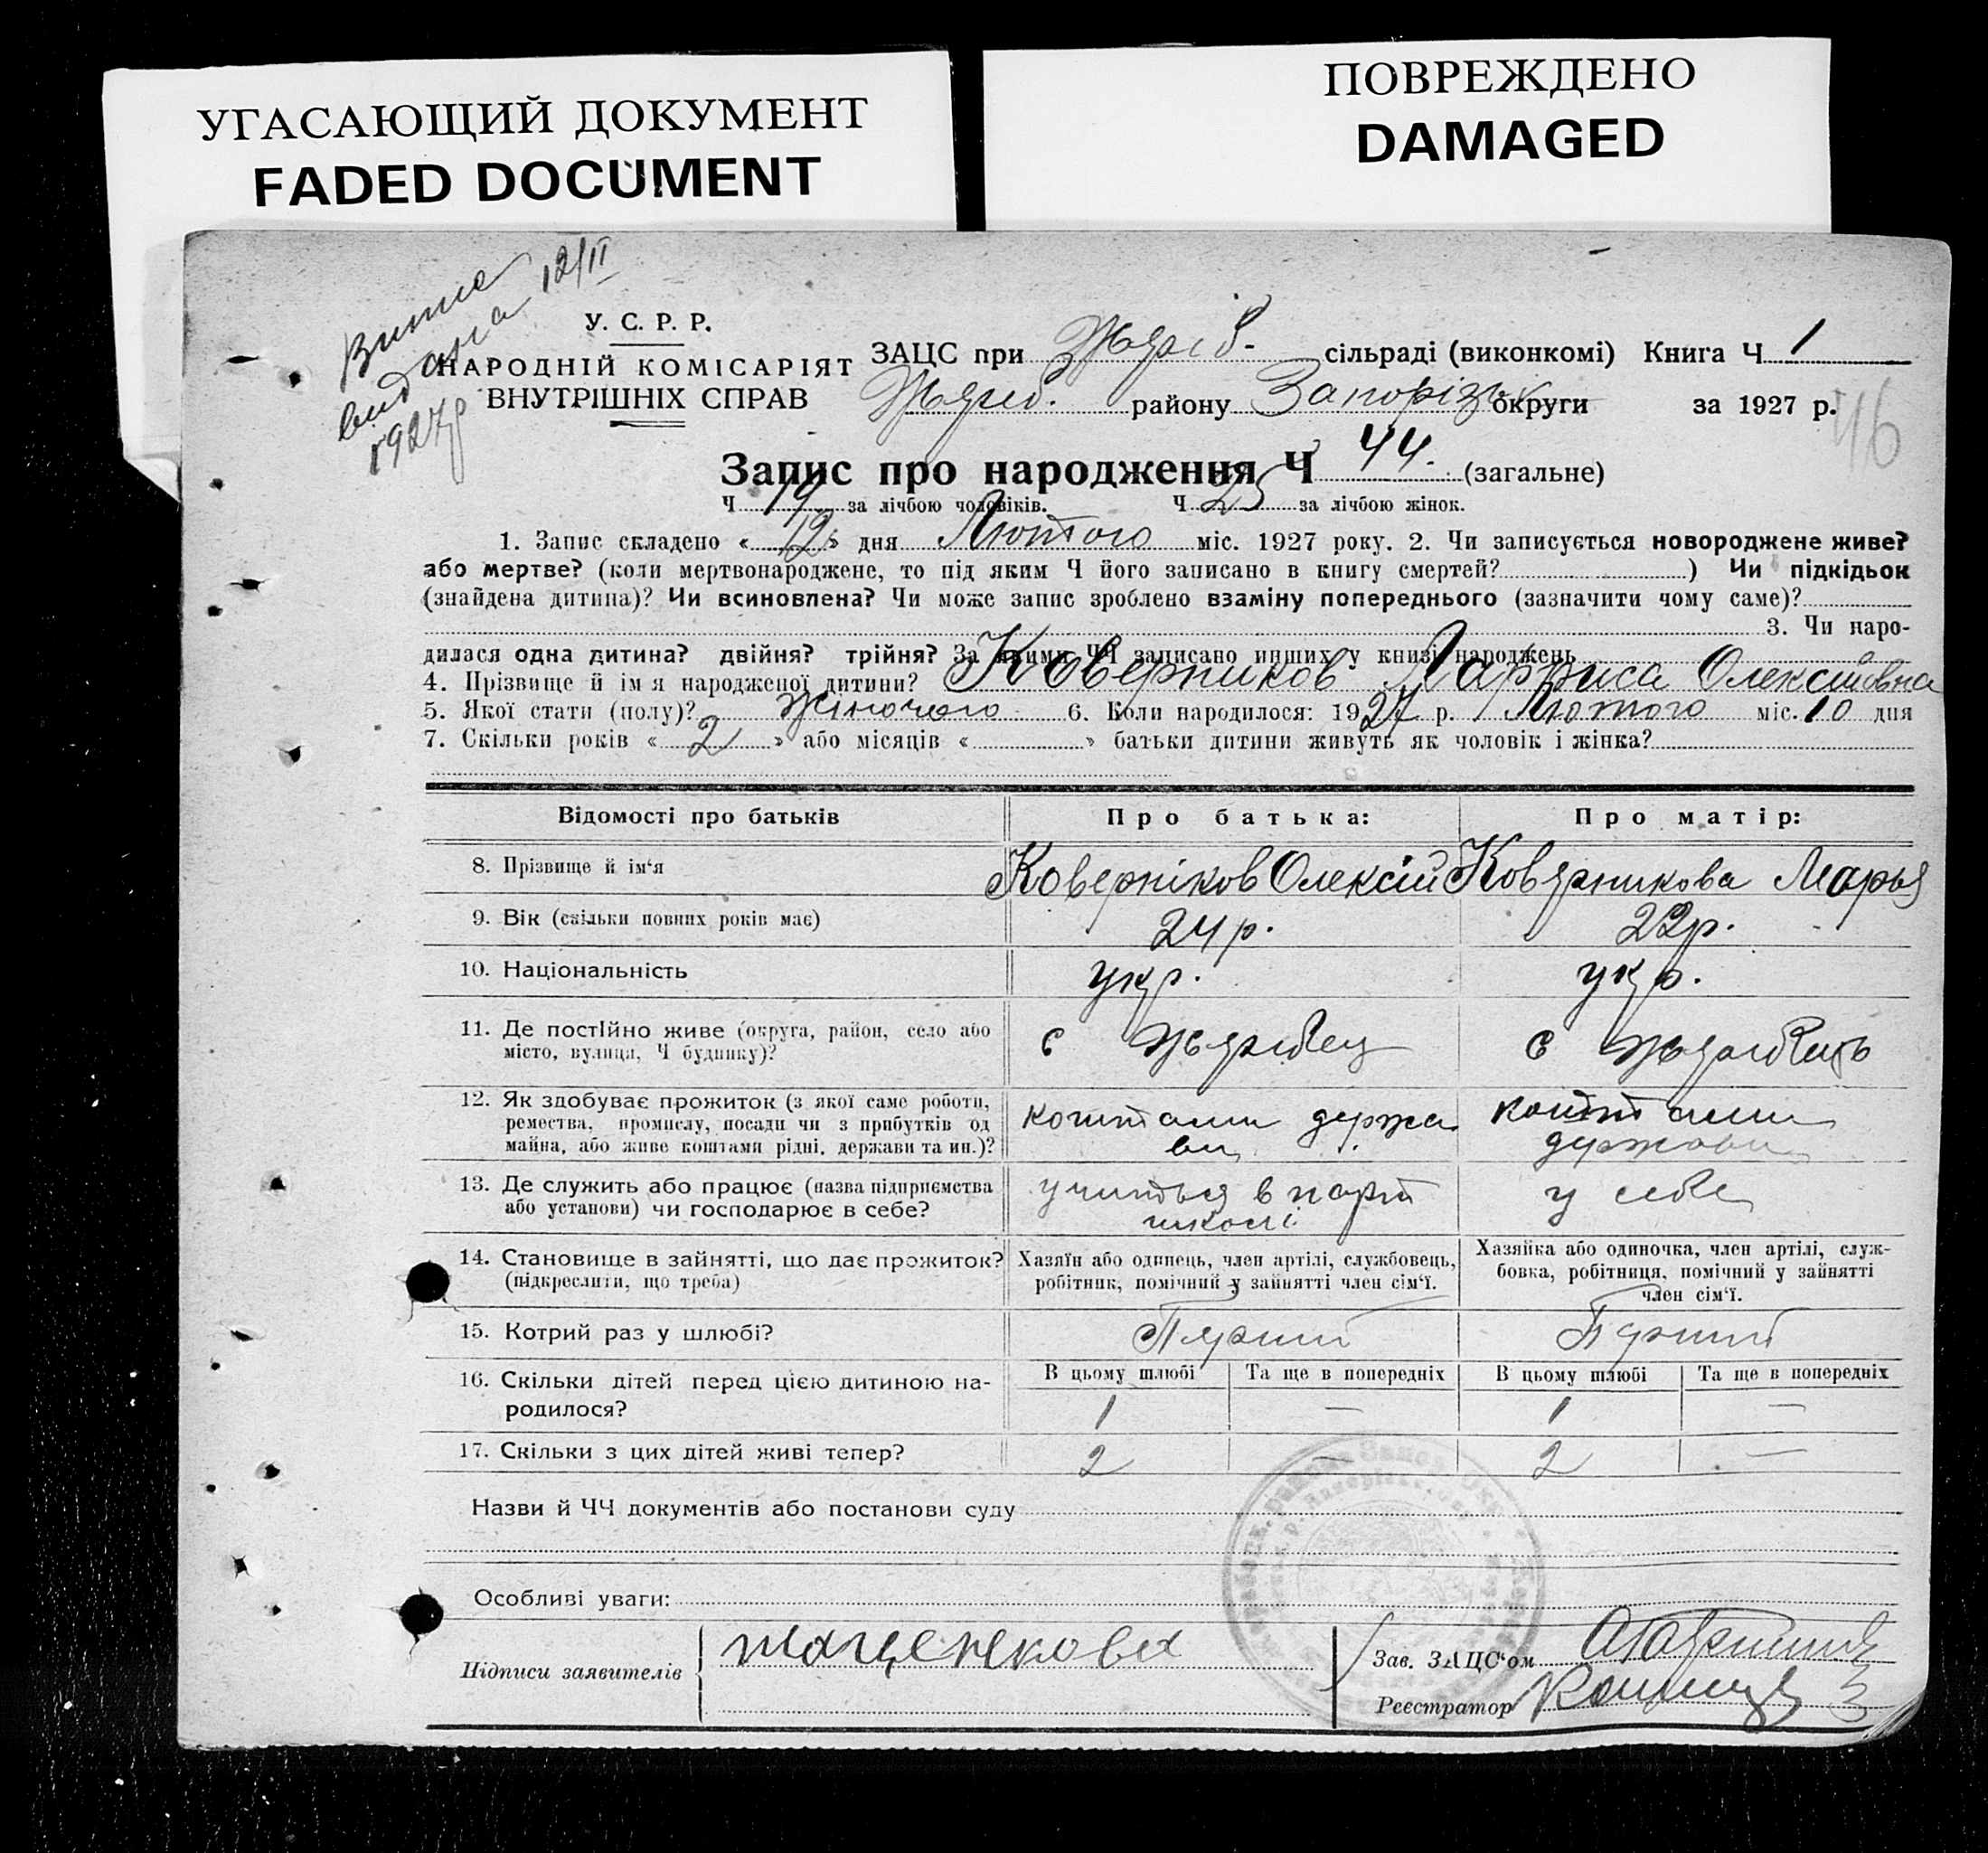 УГАСАЮЩИЙ ДОКУМЕНТ
FADED DOCUMENT
ПОВРЕЖДЕНО
DAMAGED
12/II
1927р
У. С. Р. Р.
НАРОДНІЙ КОМІСАРІЯТ
ВНУТРІШНІХ СПРАВ
ЗАЦС при сільраді (виконкомі) Книга Ч 1
району Запорізьк округи за 1927 р.
46
Запис про народження Ч 44. (загальне)
Ч 19 за лічбою чоловіків. Ч 25 за лічбою жінок.
1. Запис складено « 12 » дня Лютого міс. 1927 року. 2. Чи записується новороджене живе?
або мертве? (коли мертвонароджене, то під яким Ч його записано в книгу смертей? ) Чи підкідьок
(знайдена дитина)? Чи всиновлена? Чи може запис зроблено взаміну попереднього (зазначити чому саме)?
3. Чи наро-
дилася одна дитина? двійня? трійня? За якими ЧЧ записано инших у книзі народжень
4. Прізвище й імя народженої дитини? Коверников Лариса Олексіївна
5. Якої стати (полу)? жіночого 6. Коли народилося: 1927 р. Лютого міс. 10 дня
7. Скільки років « 2 » або місяців « » батьки дитини живуть як чоловік і жінка?
Відомості про батьків
Про батька:
Про матір:
8. Прізвище й ім'я
Коверніков Олексій
Ковярникова Марья
9. Вік (скільки повних років має)
24 р.
22 р.
10. Національність
укр.
укр.
11. Де постійно живе (округа, район, село або
місто, вулиця, Ч будинку)?
с
с
12. Як здобуває прожиток (з якої саме роботи,
ремества, промислу, посади чи з прибутків од
майна, або живе коштами рідні, держави та ин.)?
коштами держа
ви
коштами
держави
13. Де служить або працює (назва підприємства
або установи) чи господарює в себе?
учиться в парт
школі
у себе
14. Становище в зайнятті, що дає прожиток?
(підкреслити, що треба)
Хазяїн або одинець, член артілі, службовець,
робітник, помічний у зайнятті член сім'ї.
Хазяйка або одиночка, член артілі, служ-
бовка, робітниця, помічний у зайнятті
член сім'ї.
15. Котрий раз у шлюбі?
Перший
Перший
16. Скільки дітей перед цією дитиною на-
родилося?
В цьому шлюбі
Та ще в попередніх
В цьому шлюбі
Та ще в попередніх
1 — 1 —
17. Скільки з цих дітей живі тепер?
2 2 —
Назви й ЧЧ документів або постанови суду
Особливі уваги:
Підписи заявителів
Зав. ЗАЦС'ом
Реєстратор